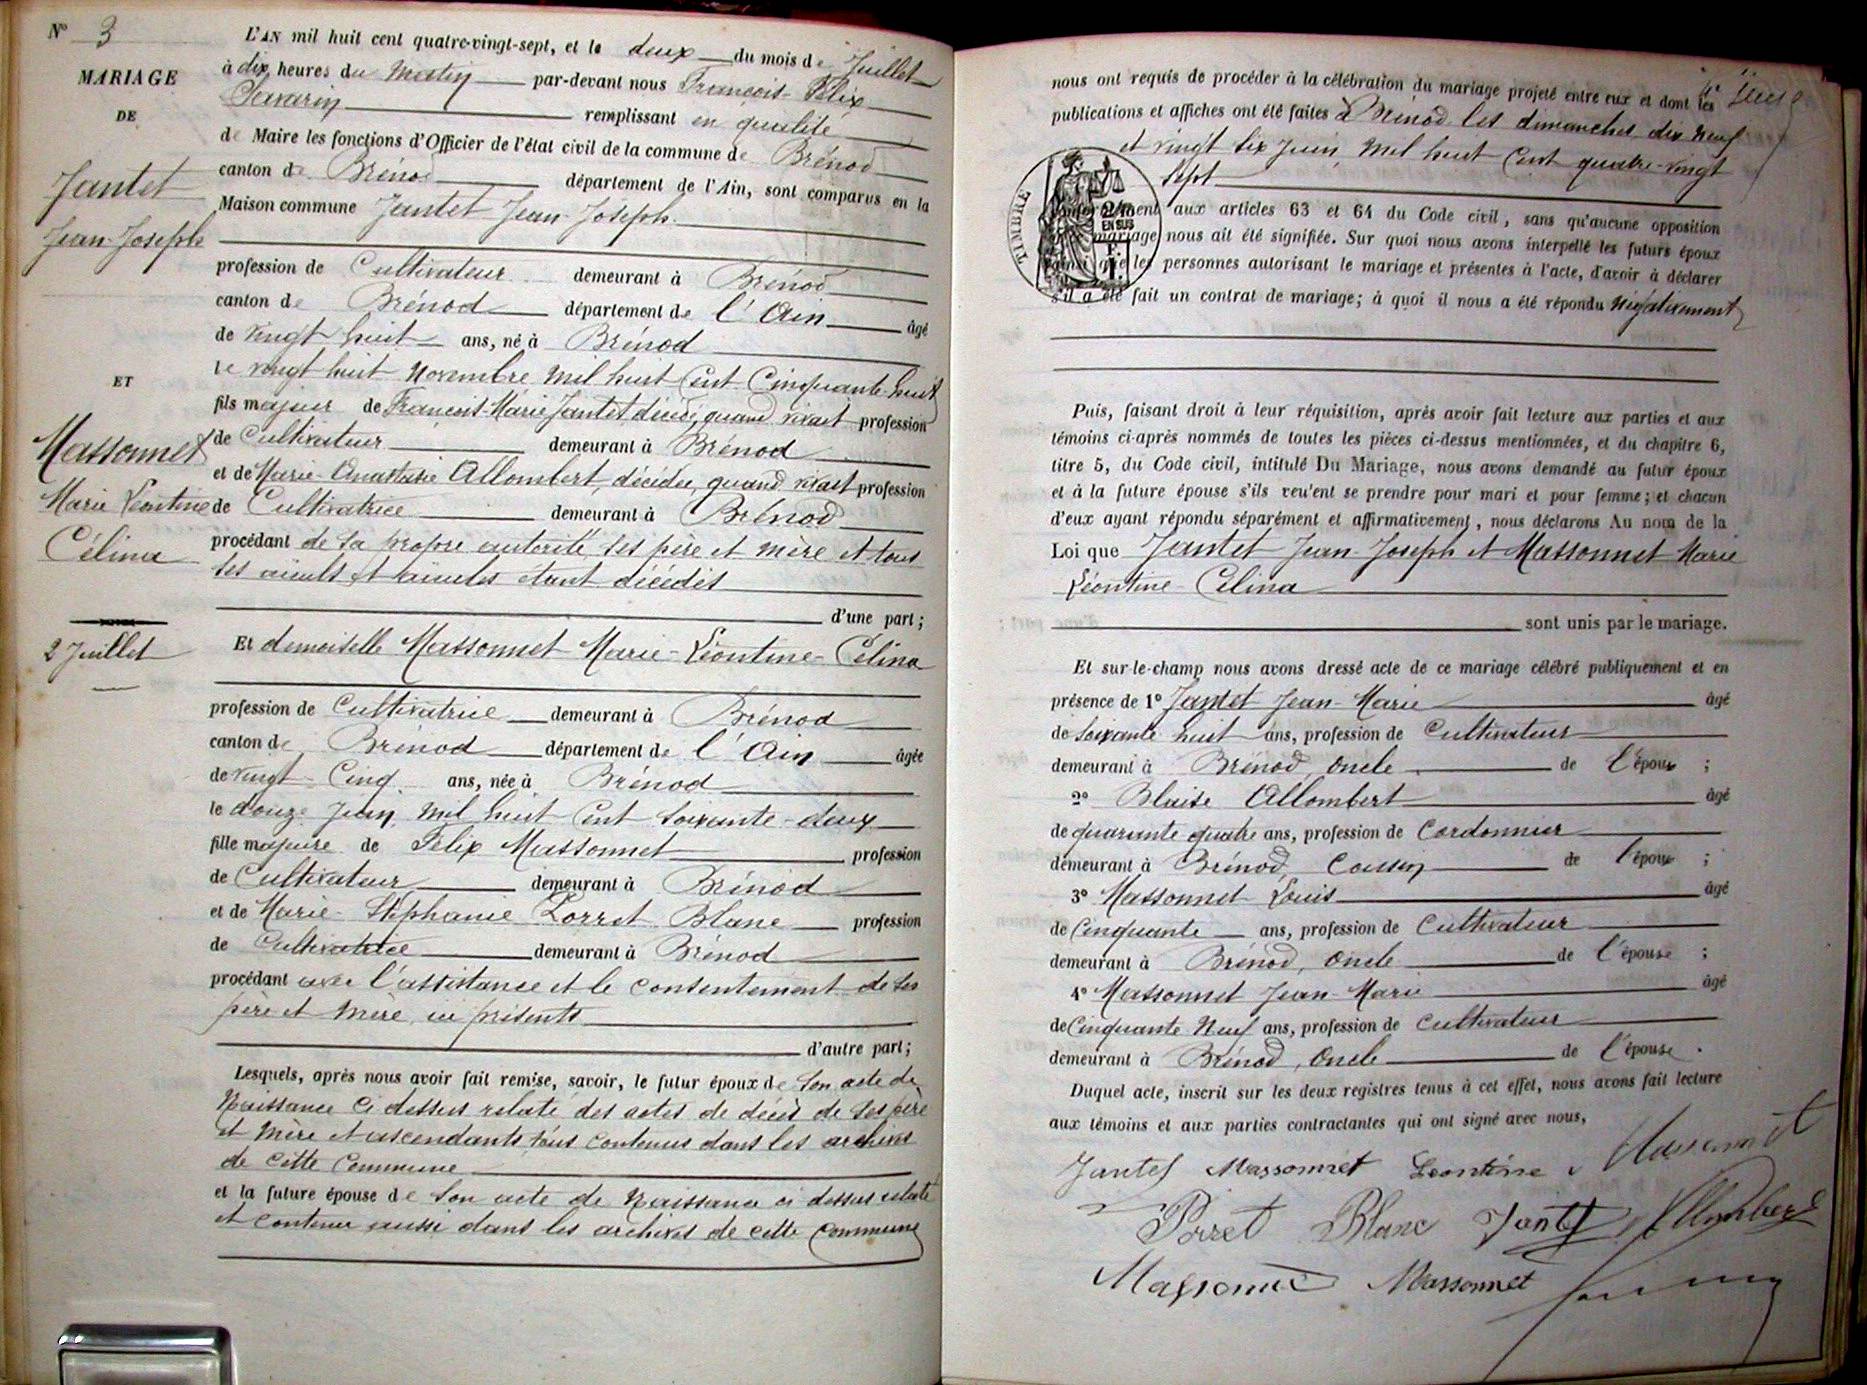 N° 3
MARIAGE
DE
Jantet
Jean-Joseph
ET
Massonnet
Marie Léontine
Célina
2 Juillet
L'AN mil huit cent quatre-vingt-sept, et le deux du mois de Juillet
à dix heures du Matin par-devant nous François-Félix
Savarin remplissant en qualité
de Maire les fonctions d'Officier de l'état civil de la commune de Brénod
canton de Brénod département de l'Ain, sont comparus en la
Maison commune Jantet Jean-Joseph
profession de Cultivateur demeurant à Brénod
canton de Brénod département de l'Ain âgé
de vingt huit ans, né à Brénod
le vingt huit Novembre mil huit Cent Cinquante-huit
fils majeur de François-Marie Jantet, décédé, quand vivait profession
de Cultivateur demeurant à Brénod
et de Marie-Anastasie Allombert, décédée, quand vivait profession
de Cultivatrice demeurant à Brénod
procédant de sa propre autorité, ses père et mère et tous
ses aïeuls et aïeules étant décédés
d'une part;
Et demoiselle Massonnet Marie-Léontine-Célina
profession de Cultivatrice demeurant à Brénod
canton de Brénod département de l'Ain âgée
de vingt-Cinq ans, née à Brénod
le douze Juin mil huit Cent soixante-deux
fille majeure de Félix Massonnet profession
de Cultivateur demeurant à Brénod
et de Marie-Stéphanie Porret Blanc profession
de Cultivatrice demeurant à Brénod
procédant avec l'assistance et le consentement de ses
père et mère, ici présents
d'autre part;
Lesquels, après nous avoir fait remise, savoir, le futur époux de son acte de
Naissance ci dessus relaté des actes de décès de ses père
et mère et ascendants, tous contenus dans les archives
de cette Commune
et la future épouse de son acte de Naissance ci dessus relaté
et contenu aussi dans les archives de cette Commune
nous ont requis de procéder à la célébration du mariage projeté entre eux et dont les
publications et affiches ont été faites à Brénod les dimanches dix neuf
et vingt six Juin mil huit Cent quatre-vingt
sept
TIMBRE
2/10
EN SUS
conformément aux articles 63 et 64 du Code civil, sans qu'aucune opposition
mariage nous ait été signifiée. Sur quoi nous avons interpellé les futurs époux
ainsi que les personnes autorisant le mariage et présentes à l'acte, d'avoir à déclarer
s'il a été fait un contrat de mariage; à quoi il nous a été répondu négativement
Puis, faisant droit à leur réquisition, après avoir fait lecture aux parties et aux
témoins ci-après nommés de toutes les pièces ci-dessus mentionnées, et du chapitre 6,
titre 5, du Code civil, intitulé Du Mariage, nous avons demandé au futur époux
et à la future épouse s'ils veulent se prendre pour mari et pour femme; et chacun
d'eux ayant répondu séparément et affirmativement, nous déclarons Au nom de la
Loi que Jantet Jean-Joseph et Massonnet Marie
Léontine-Célina
sont unis par le mariage.
Et sur-le-champ nous avons dressé acte de ce mariage célébré publiquement et en
présence de 1° Jantet Jean-Marie âgé
de soixante huit ans, profession de Cultivateur
demeurant à Brénod, oncle de l'époux ;
2° Blaise Allombert âgé
de quarante quatre ans, profession de Cordonnier
demeurant à Brénod, Cousin de l'époux ;
3° Massonnet Louis âgé
de Cinquante ans, profession de Cultivateur
demeurant à Brénod, oncle de l'épouse ;
4° Massonnet Jean-Marie âgé
de Cinquante Neuf ans, profession de Cultivateur
demeurant à Brénod, oncle de l'épouse .
Duquel acte, inscrit sur les deux registres tenus à cet effet, nous avons fait lecture
aux témoins et aux parties contractantes qui ont signé avec nous,
Jantet Massonnet Leontine Massonnet
Porret Blanc Jantet Allombert
Massonnet Massonnet